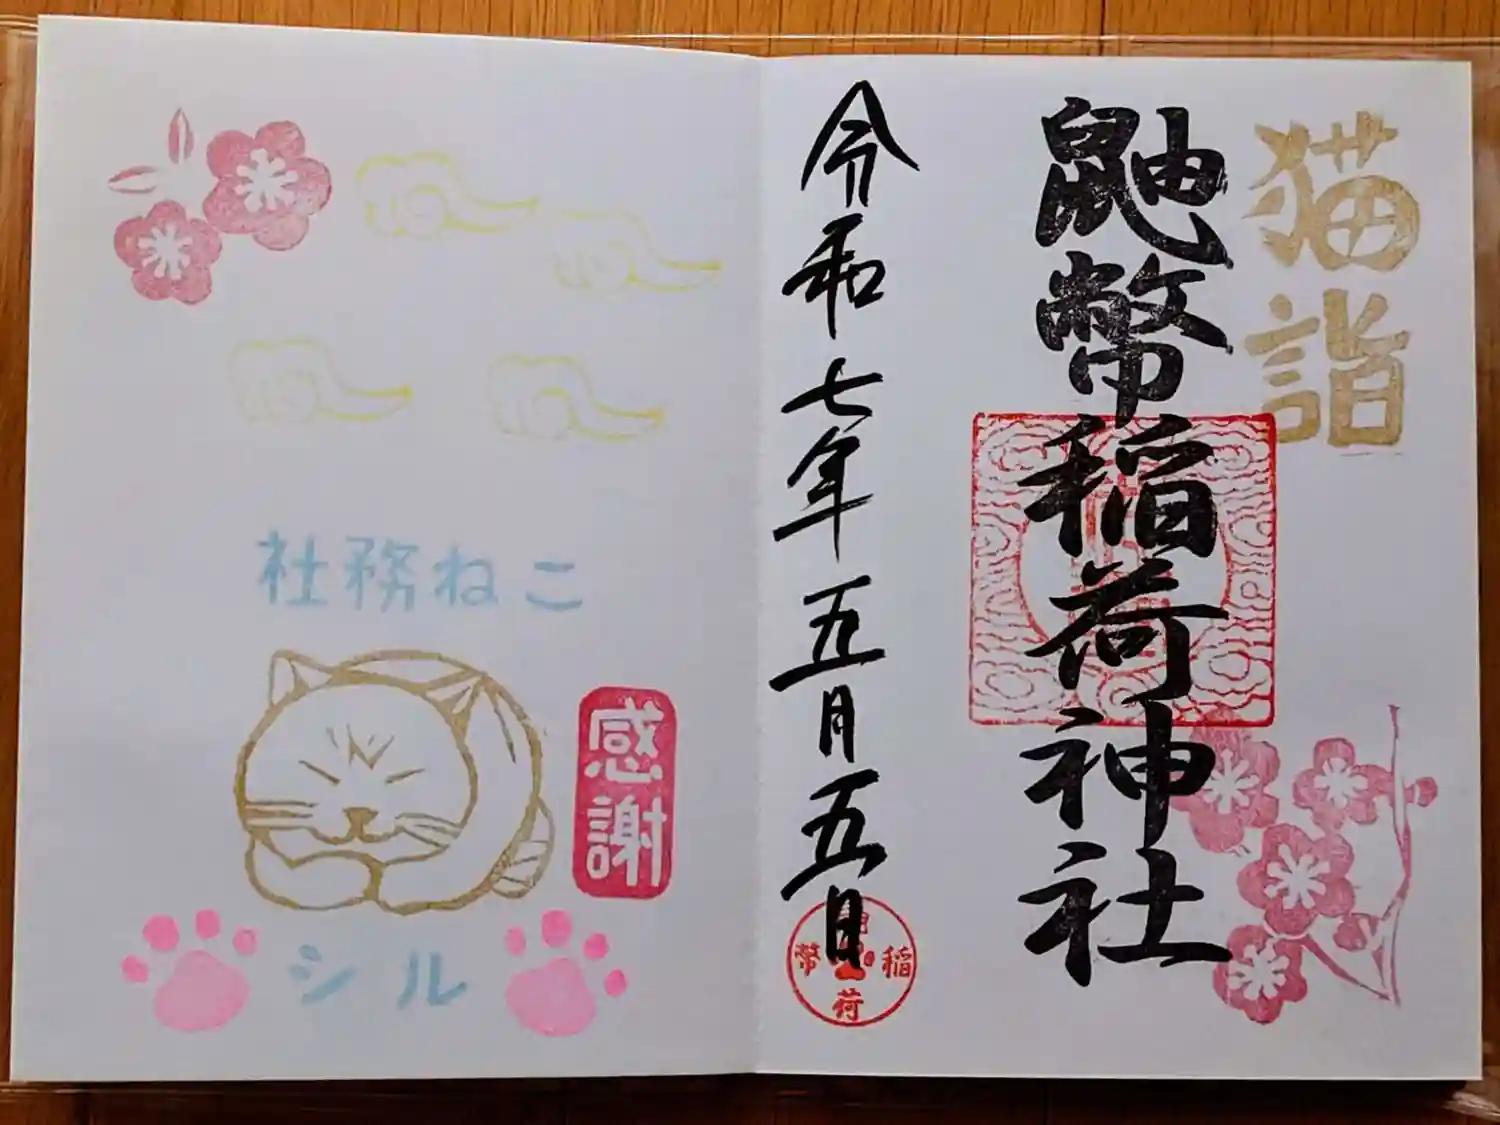 猫詣
鼬幣稲荷神社
令和七年五月五日
幣稲
荷
社務ねこ
感謝
シル